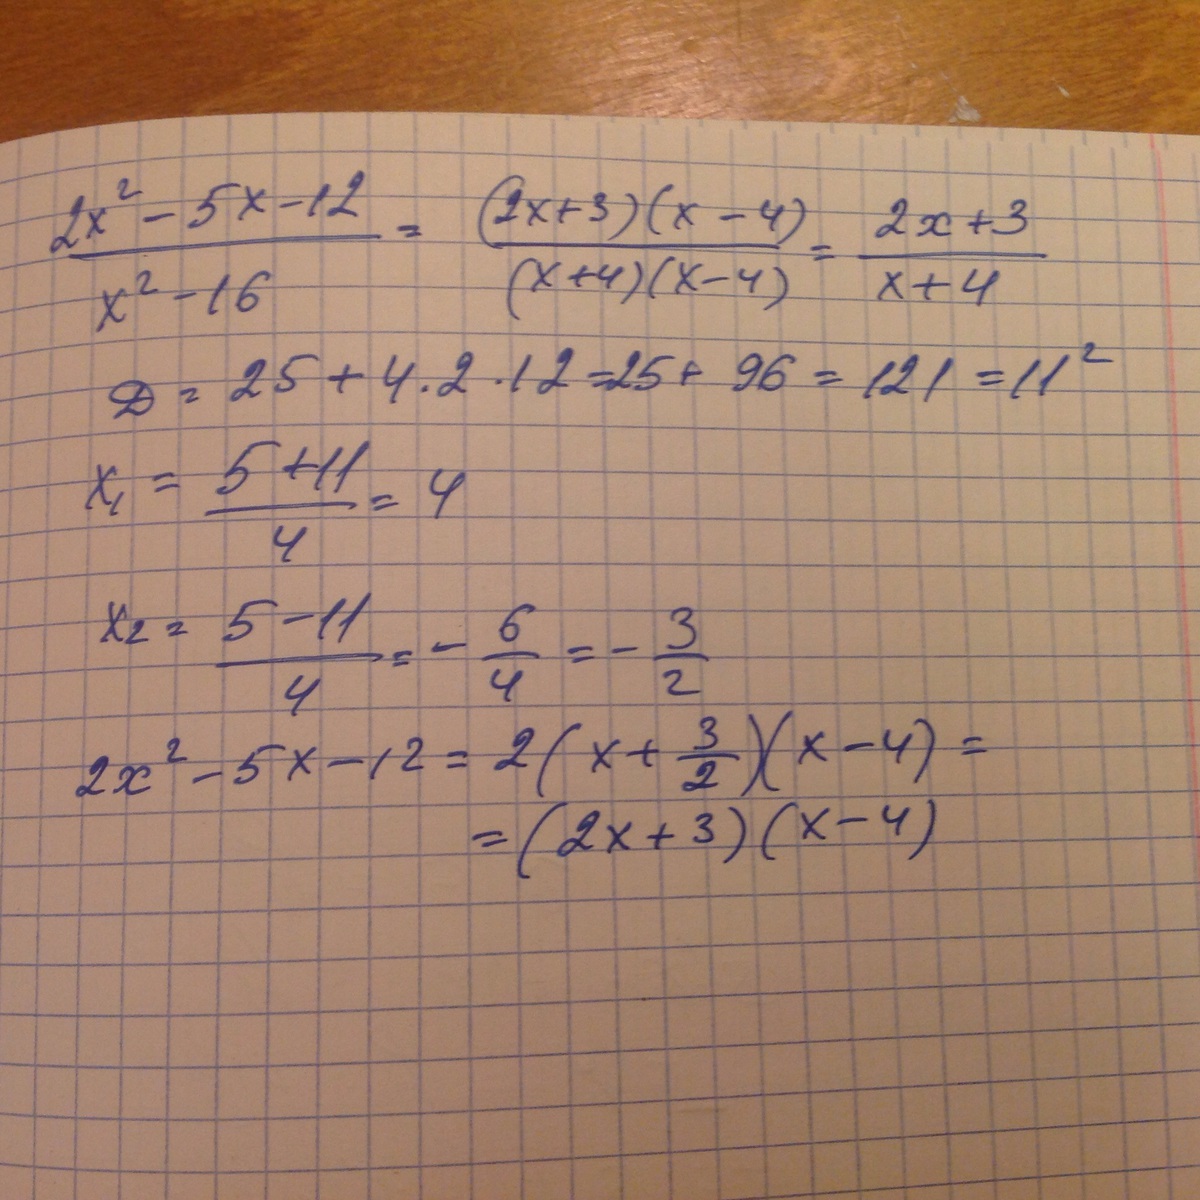 (2x² - 5x - 12)/(x² - 16) = ((2x+3)(x-4))/((x+4)(x-4)) = (2x+3)/(x+4)
D = 25 + 4·2·12 = 25 + 96 = 121 = 11²
x₁ = (5+11)/4 = 4
x₂ = (5-11)/4 = -6/4 = -3/2
2x² - 5x - 12 = 2(x + 3/2)(x - 4) =
= (2x+3)(x-4)